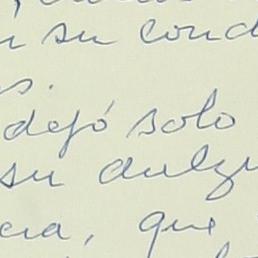 n su cond
s.
dejó solo
su dulzu
cia, que